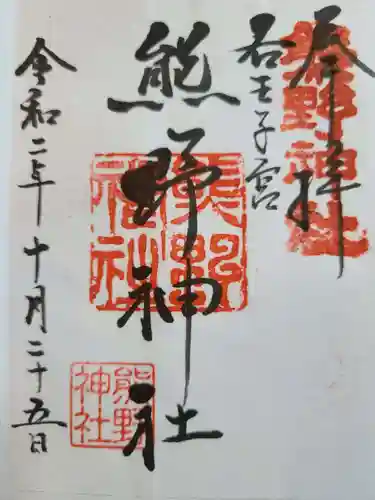 奉拝
熊野神社
若王子宮
熊野神社
熊野
神社
令和二年十月二十五日